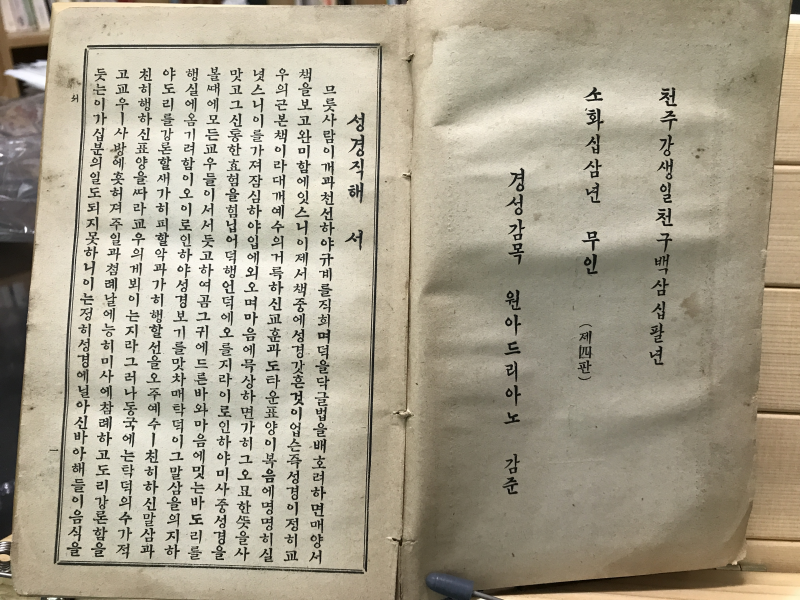 천주강생일천구백삼십팔년
소화십삼년 무인 (제四판)
경성감목 원아드리아노 감준
성경직해 서
므릇사람이개과천선하야규계를직희며덕을닥글법을배호려하면매양서
책을보고완미함에잇스니이제서책중에성경갓흔것이업슨즉성경이정히교
우의근본책이라대개예수의거룩하신교훈과도타운표양이복음에명명히실
녓스니이를가져잠심하야입에외오며마음에믁상하면가히그오묘한ᄯᅳᆺ을사
맛고그신통한효험을힘닙어덕행언덕에오를지라이로인하야미사중성경을
볼ᄯᅢ에모든교우들이서서듯고하여곰그귀에드른바와마음에밋는바도리를
행실에옴기려함이오이로인하야성경보기를맛차매탁덕이그말삼을의지하
야도리를강론할새가히피할악과가히행할선을오주예수ㅣ친히하신말삼과
친히행하신표양을ᄯᅡ라교우의게뵈이는지라그러나동국에는탁덕의수가적
고교우ㅣ사방에흣허져주일과첨례날에능히미사에참례하고도리강론함을
듯는이가십분의일도되지못하니이는정히성경에닐아신바아해들이음식을
一